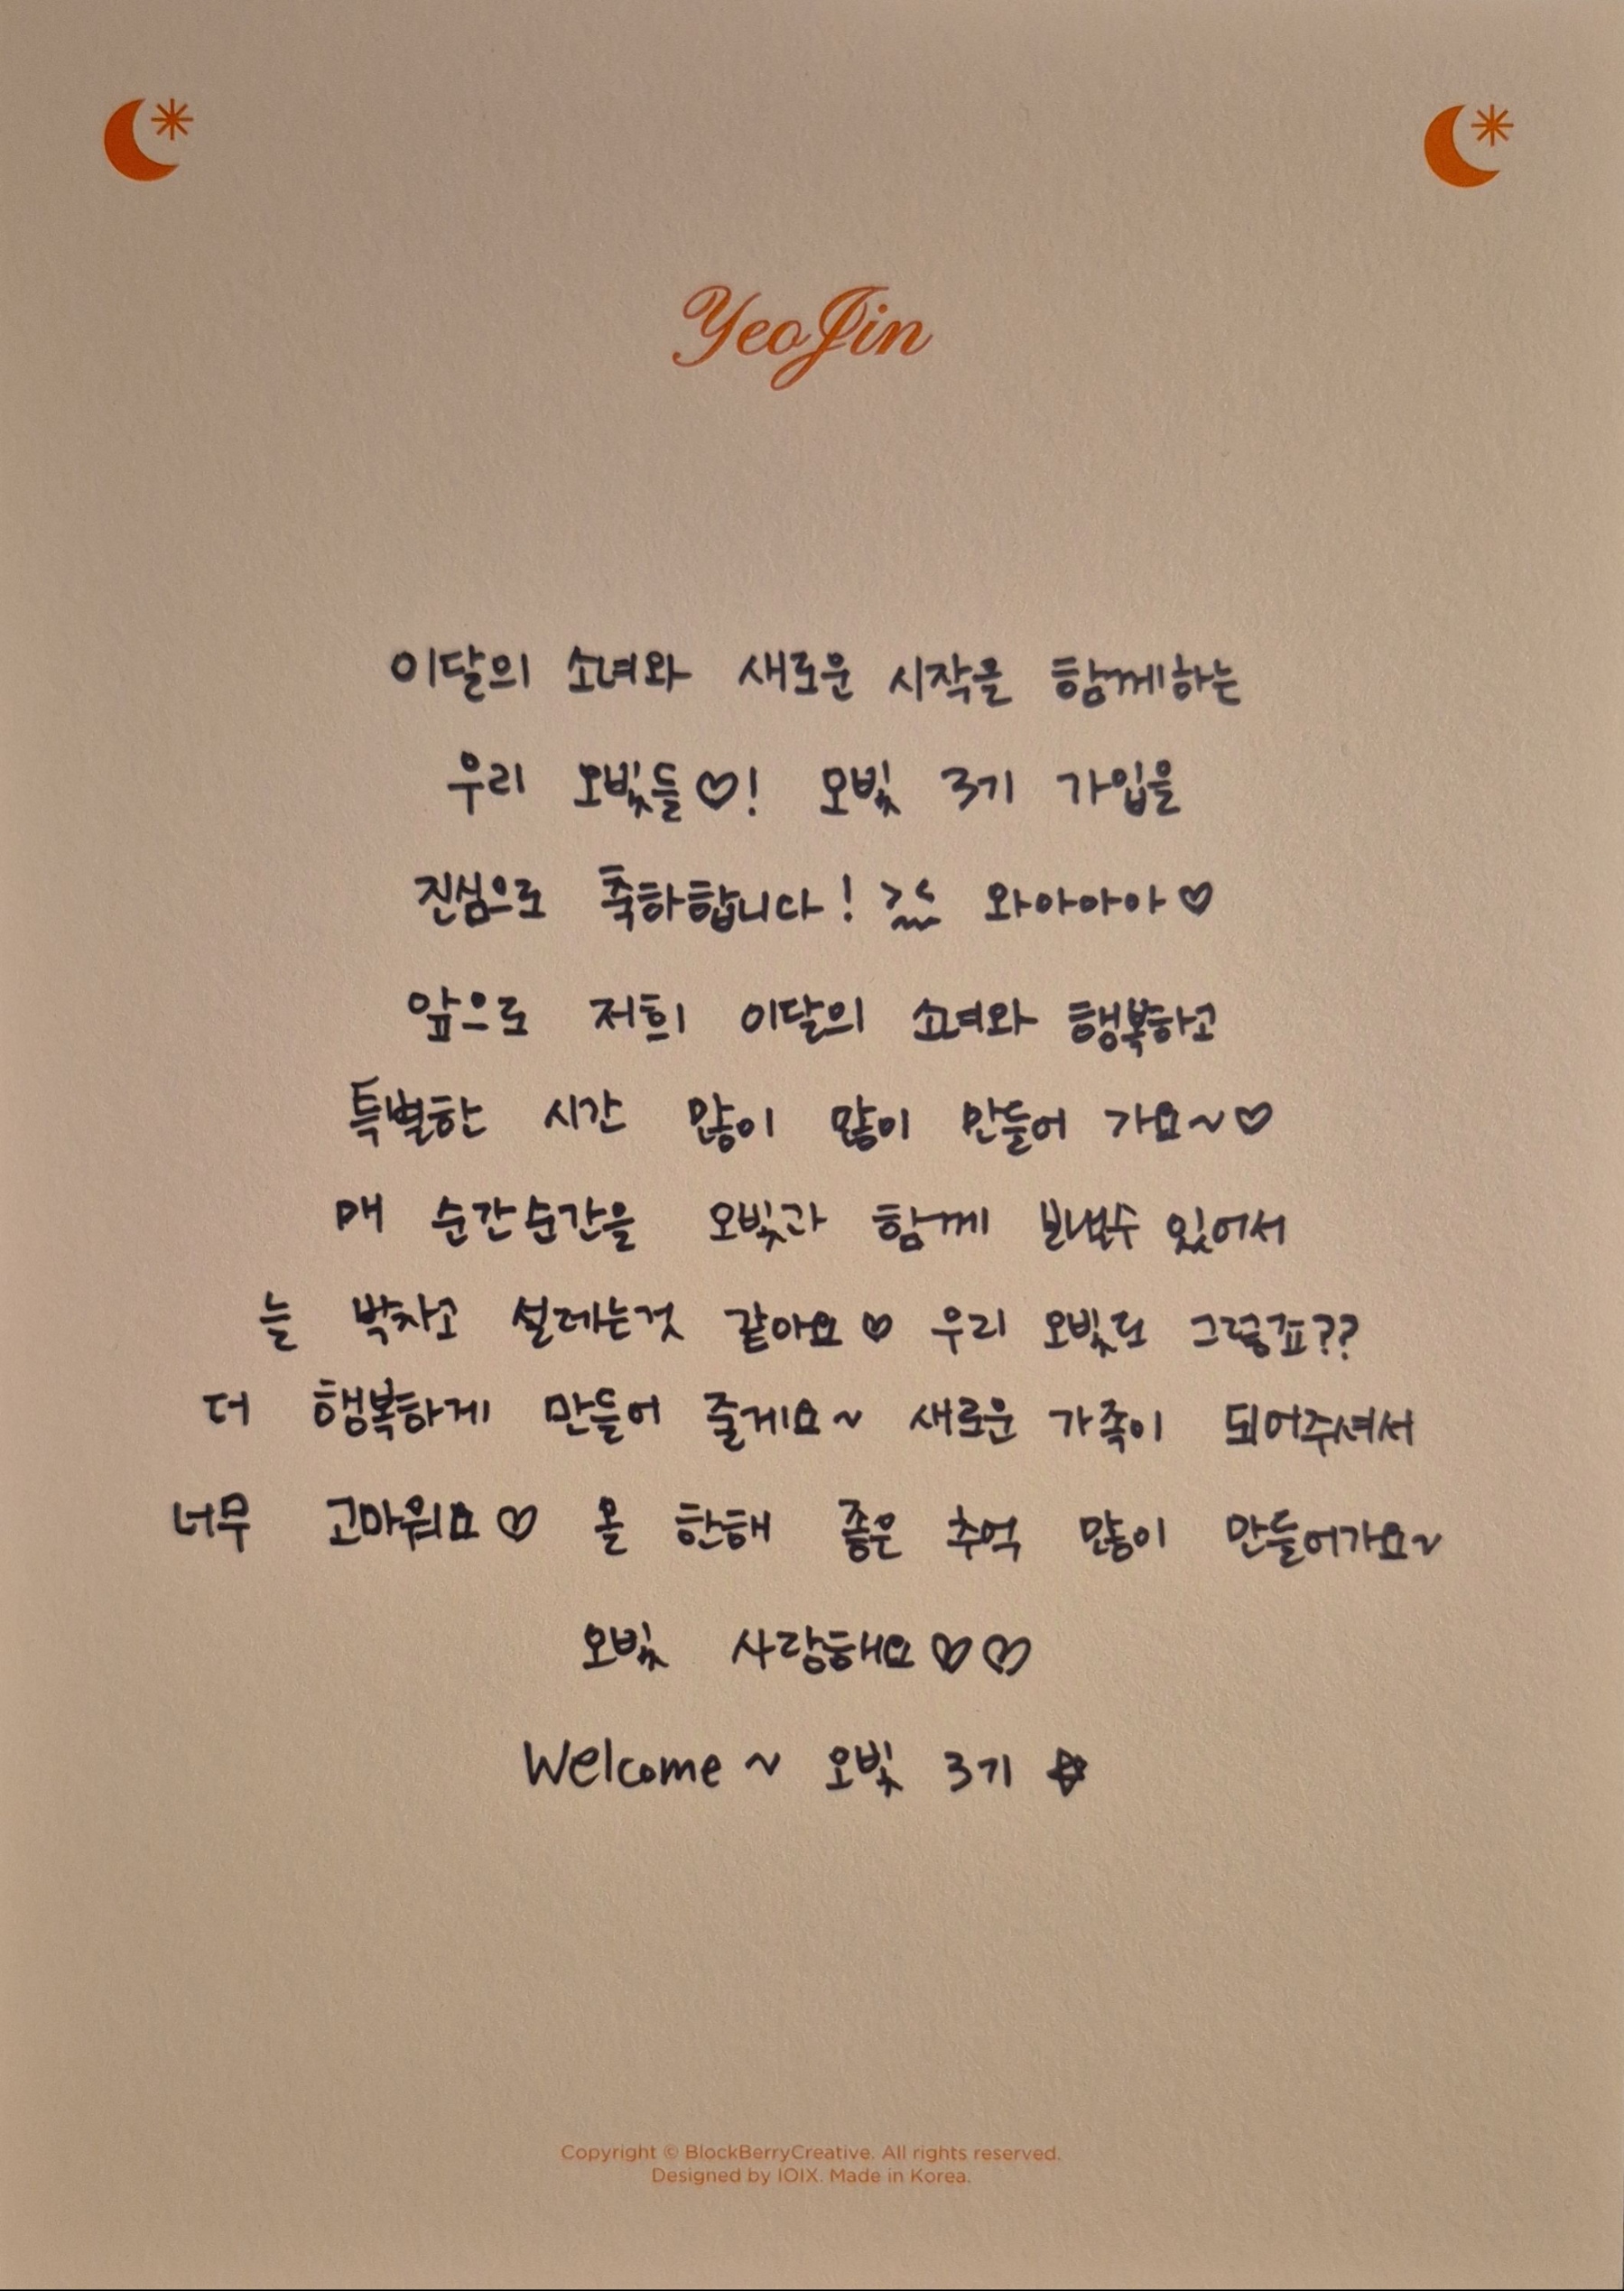 YeoJin
이달의 소녀와 새로운 시작을 함께하는
우리 오빛들♡! 오빛 3기 가입을
진심으로 축하합니다! 와아아아♡
앞으로 저희 이달의 소녀와 행복하고
특별한 시간 많이 많이 만들어 가요~♡
매 순간순간을 오빛과 함께 보낼수 있어서
늘 벅차고 설레는것 같아요♡ 우리 오빛도 그렇죠??
더 행복하게 만들어 줄게요~ 새로운 가족이 되어주셔서
너무 고마워요♡ 올 한해 좋은 추억 많이 만들어가요~
오빛 사랑해요♡♡
Welcome~ 오빛 3기 ☆
Copyright © BlockBerryCreative. All rights reserved.
Designed by IOIX. Made in Korea.